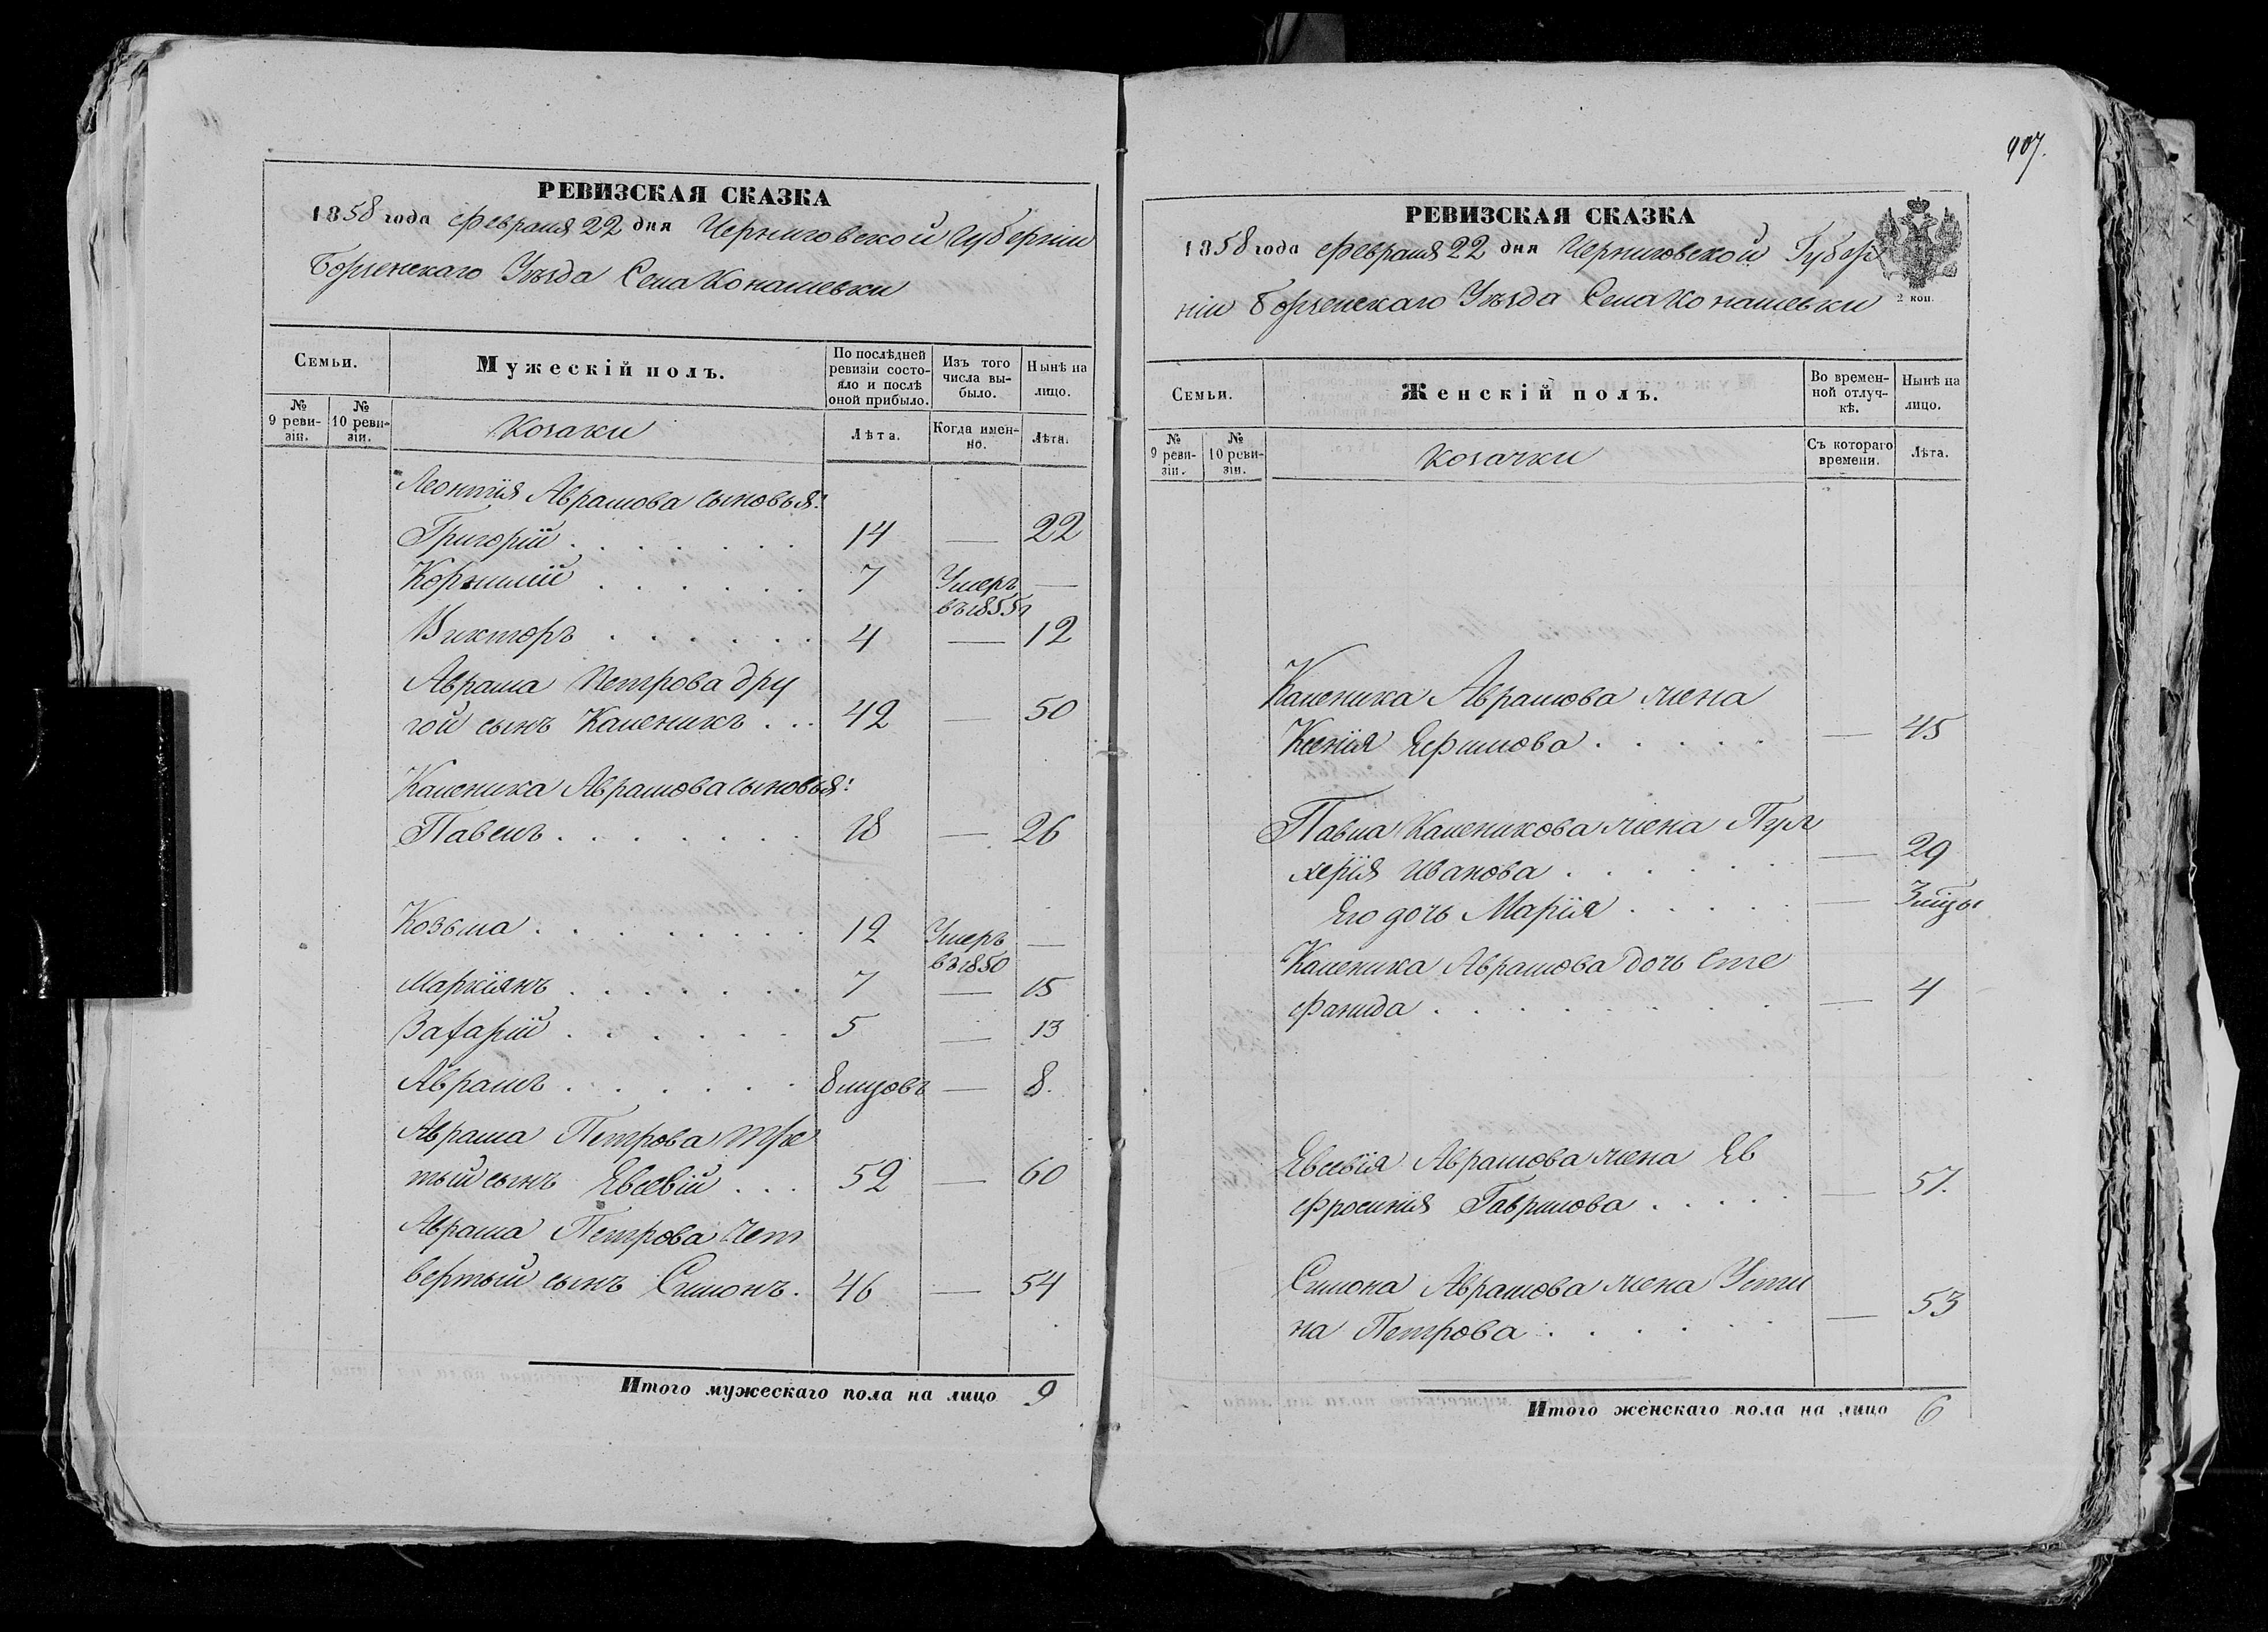 РЕВИЗСКАЯ СКАЗКА
1858 года Февраля 22 дня Черниговской Губерніи
Борзенскаго Уѣзда Села Конашевки
Семьи.
Мужескій полъ.
По послѣдней ревизіи состояло и послѣ оной прибыло.
Изъ того числа выбыло.
Нынѣ на лицо.
№ 9 ревизіи.
№ 10 ревизіи.
Козаки
Лѣта.
Когда именно.
Лѣта.
Леонтія Аврамова сыновья:
Григорій . . . . . . 14 — 22
Корнилій . . . . . . 7 Умеръ —
въ 1855 г
Викторъ . . . . . . 4 — 12
Аврама Петрова дру
гой сынъ Каленикъ . . 42 — 50
Каленика Аврамова сыновья:
Павелъ . . . . . . 18 — 26
Козьма . . . . . . . 12 Умеръ —
въ 1850
Маркіянъ . . . . . . 7 — 15
Захарій . . . . . . 5 — 13
Аврамъ . . . . . . 8 мцовъ — 8.
Аврама Петрова тре
тый сынъ Евсевій . . . 52 — 60
Аврама Петрова чет
вертый сынъ Симонъ. 46 — 54
Итого мужескаго пола на лицо 9
907.
РЕВИЗСКАЯ СКАЗКА
1858 года Февраля 22 дня Черниговской Губер
ніи Борзенскаго Уѣзда Села Конашевки
2 коп.
Семьи.
Женскій полъ.
Во временной отлучкѣ.
Нынѣ на лицо.
№ 9 ревизіи.
№ 10 ревизіи.
Козачки
Съ котораго времени.
Лѣта.
Каленика Аврамова жена
Ксенія Ефимова . . . . . — 45
Павла Каленикова жена Пул
херія Иванова . . . . . — 29
Его дочь Марія . . . . . — 3 мцы
Каленика Аврамова дочь Сте
фанида . . . . . . . . — 4
Евсевія Аврамова жена Ев
фросинія Гаврилова . . . . — 57.
Симона Аврамова жена Усти
на Петрова . . . . . . — 53
Итого женскаго пола на лицо 6